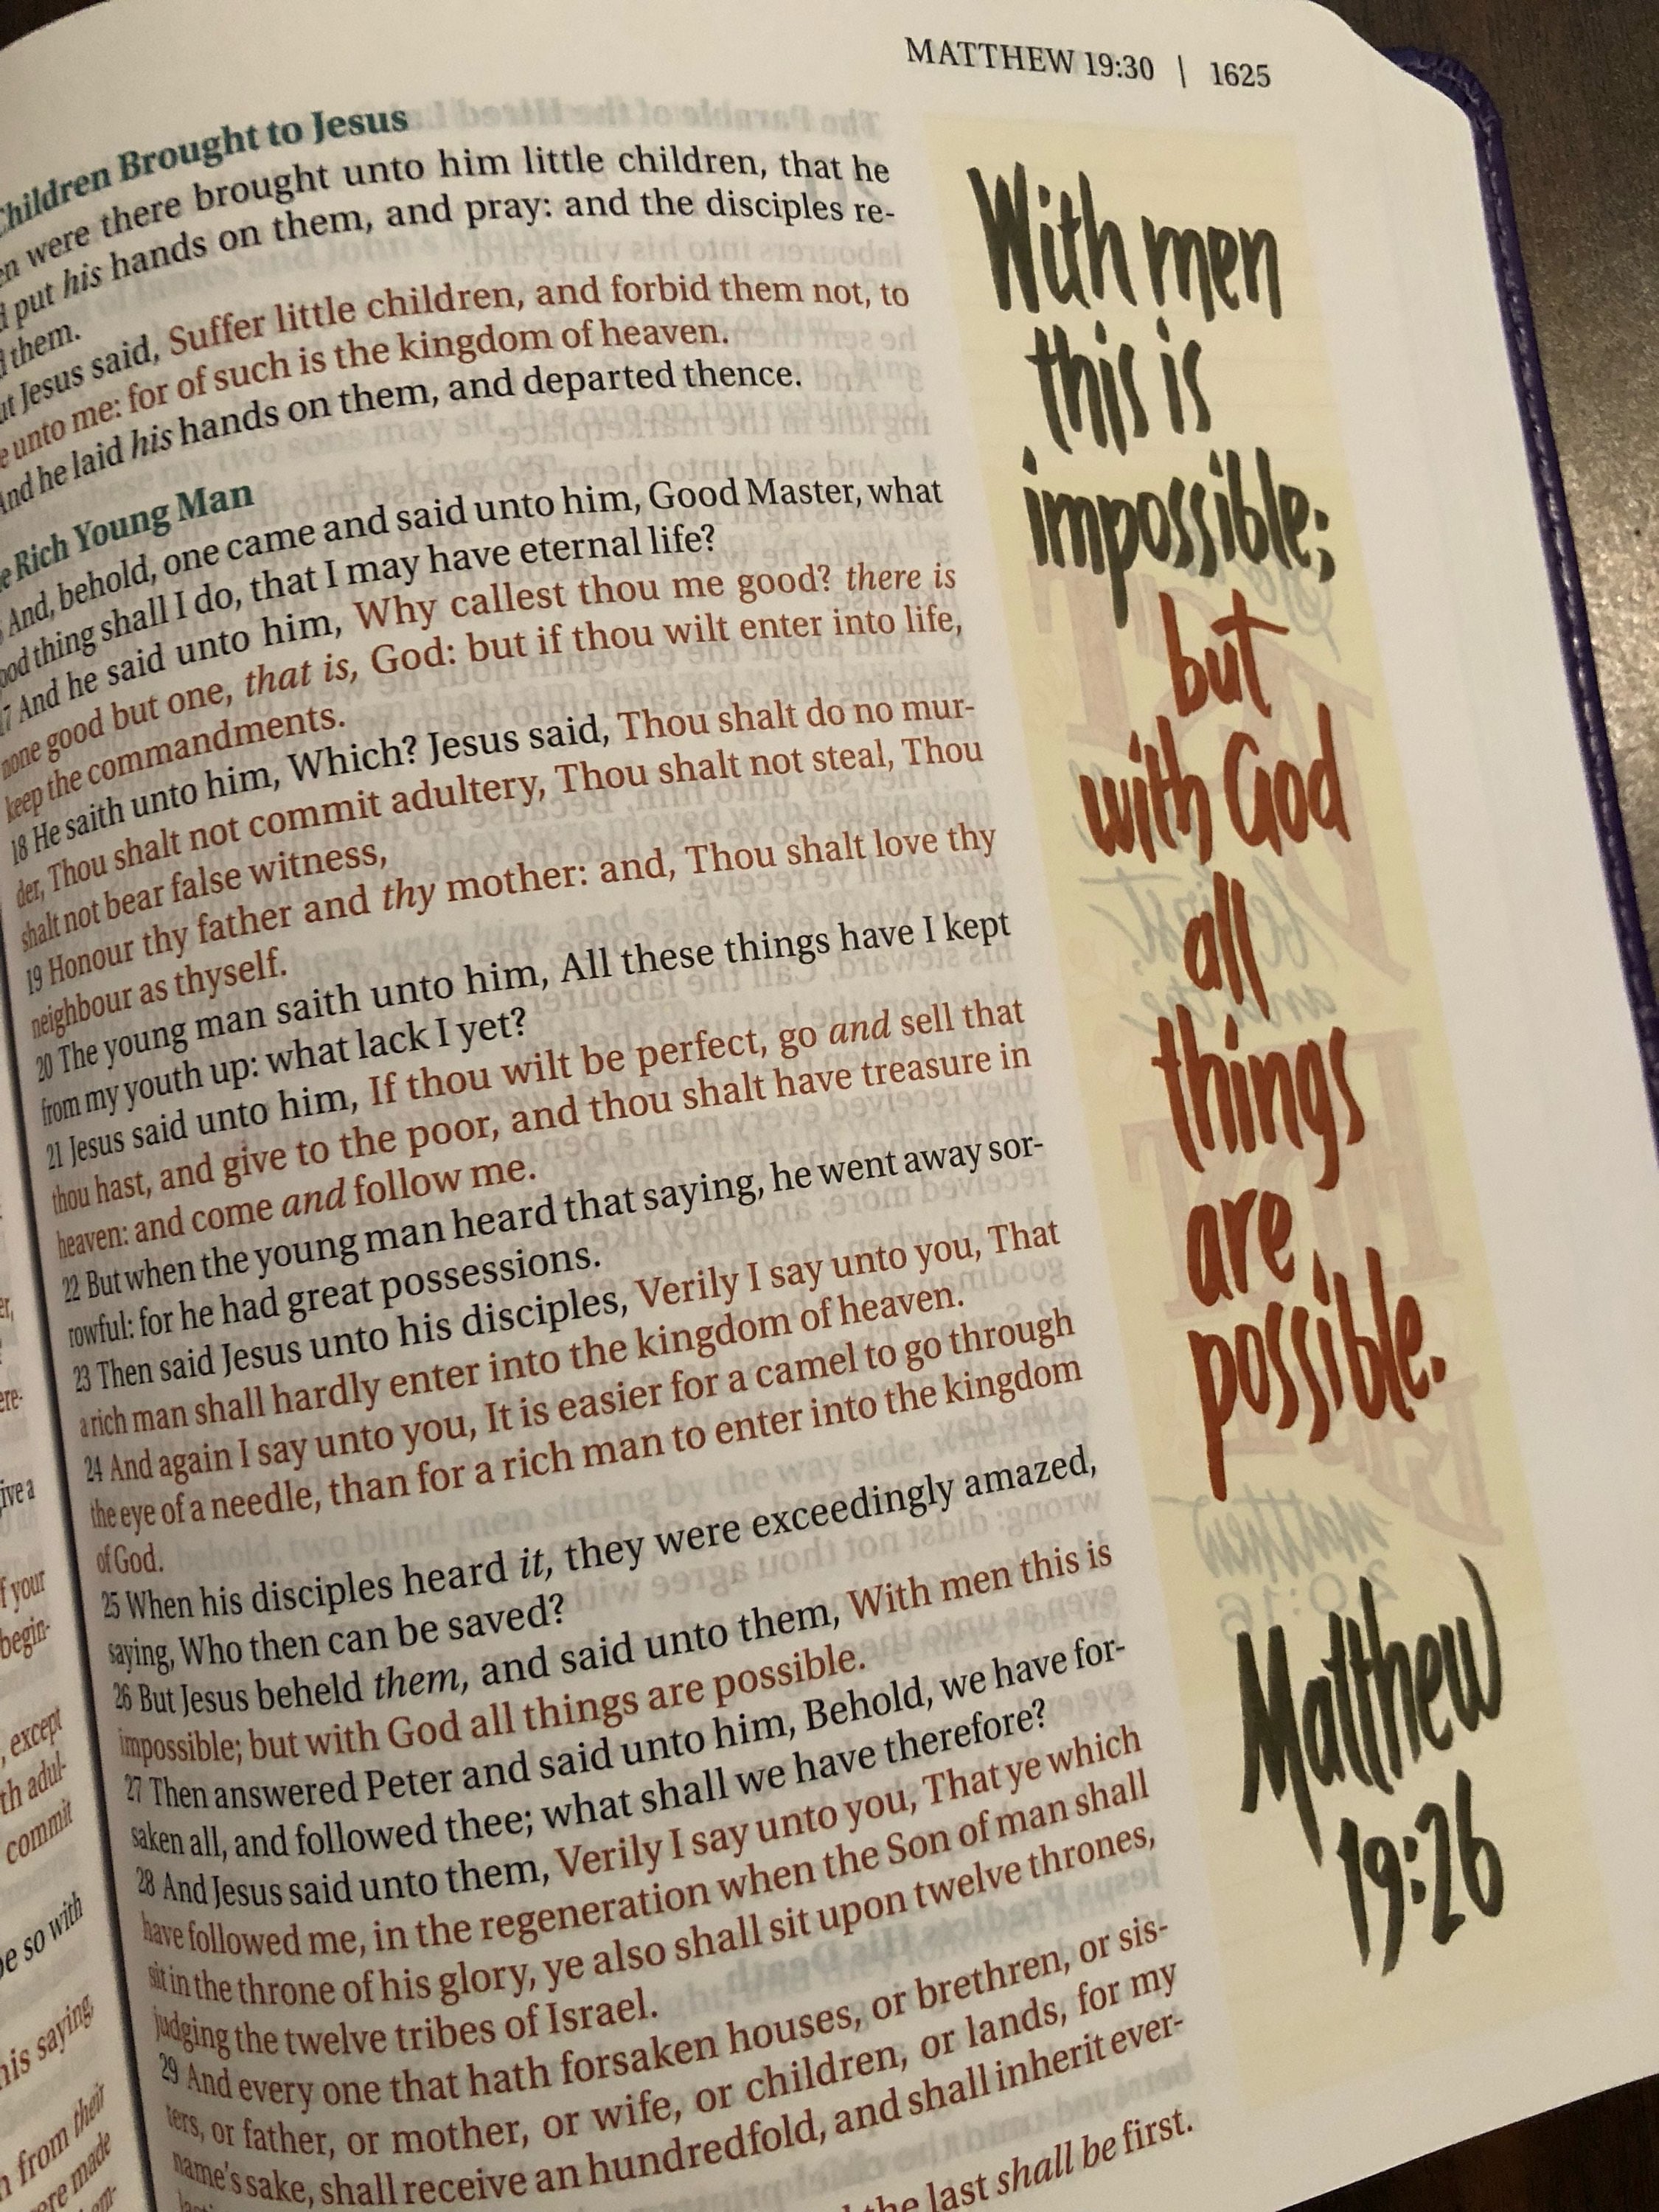 MATTHEW 19:30 | 1625
Children Brought to Jesus
were there brought unto him little children, that he
put his hands on them, and pray: and the disciples re-
them.
Jesus said, Suffer little children, and forbid them not, to
unto me: for of such is the kingdom of heaven.
And he laid his hands on them, and departed thence.
Rich Young Man
And, behold, one came and said unto him, Good Master, what
thing shall I do, that I may have eternal life?
And he said unto him, Why callest thou me good? there is
none good but one, that is, God: but if thou wilt enter into life,
keep the commandments.
18 He saith unto him, Which? Jesus said, Thou shalt do no mur-
der, Thou shalt not commit adultery, Thou shalt not steal, Thou
shalt not bear false witness,
19 Honour thy father and thy mother: and, Thou shalt love thy
neighbour as thyself.
20 The young man saith unto him, All these things have I kept
from my youth up: what lack I yet?
21 Jesus said unto him, If thou wilt be perfect, go and sell that
thou hast, and give to the poor, and thou shalt have treasure in
heaven: and come and follow me.
22 But when the young man heard that saying, he went away sor-
rowful: for he had great possessions.
23 Then said Jesus unto his disciples, Verily I say unto you, That
a rich man shall hardly enter into the kingdom of heaven.
24 And again I say unto you, It is easier for a camel to go through
the eye of a needle, than for a rich man to enter into the kingdom
of God.
25 When his disciples heard it, they were exceedingly amazed,
saying, Who then can be saved?
26 But Jesus beheld them, and said unto them, With men this is
impossible; but with God all things are possible.
27 Then answered Peter and said unto him, Behold, we have for-
saken all, and followed thee; what shall we have therefore?
28 And Jesus said unto them, Verily I say unto you, That ye which
have followed me, in the regeneration when the Son of man shall
sit in the throne of his glory, ye also shall sit upon twelve thrones,
judging the twelve tribes of Israel.
29 And every one that hath forsaken houses, or brethren, or sis-
ters, or father, or mother, or wife, or children, or lands, for my
name's sake, shall receive an hundredfold, and shall inherit ever-
the last shall be first.
With men
this is
impossible;
but
with God
all
things
are
possible.
Matthew
19:26